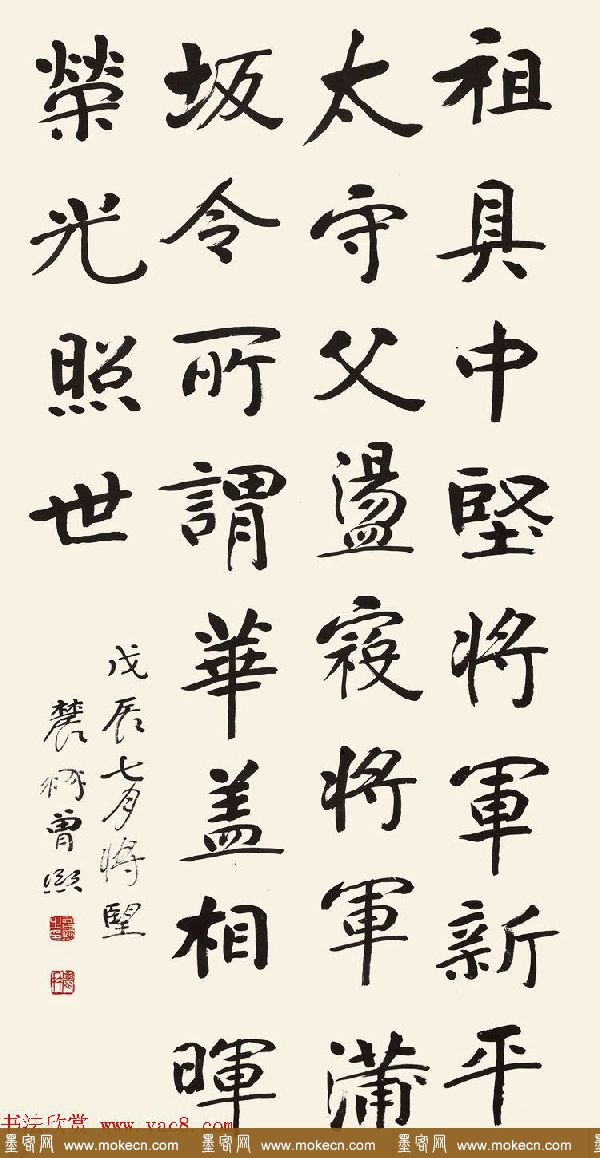 祖具中堅將軍新平
太守父盪寇將軍蒲
坂令所謂華蓋相暉
榮光照世
戊辰七月將望
農髯曾熙
书法欣赏 www.yac8.com
墨客网 www.mokecn.com 墨客网 www.mokecn.com 墨客网 www.mokecn.com